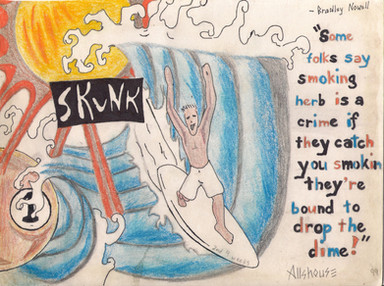 ~ Bradley Nowell
"Some
folks say
smoking
herb is a
crime if
they catch
you smokin
they're
bound to
drop the
dime!"
SKUNK
Allshouse